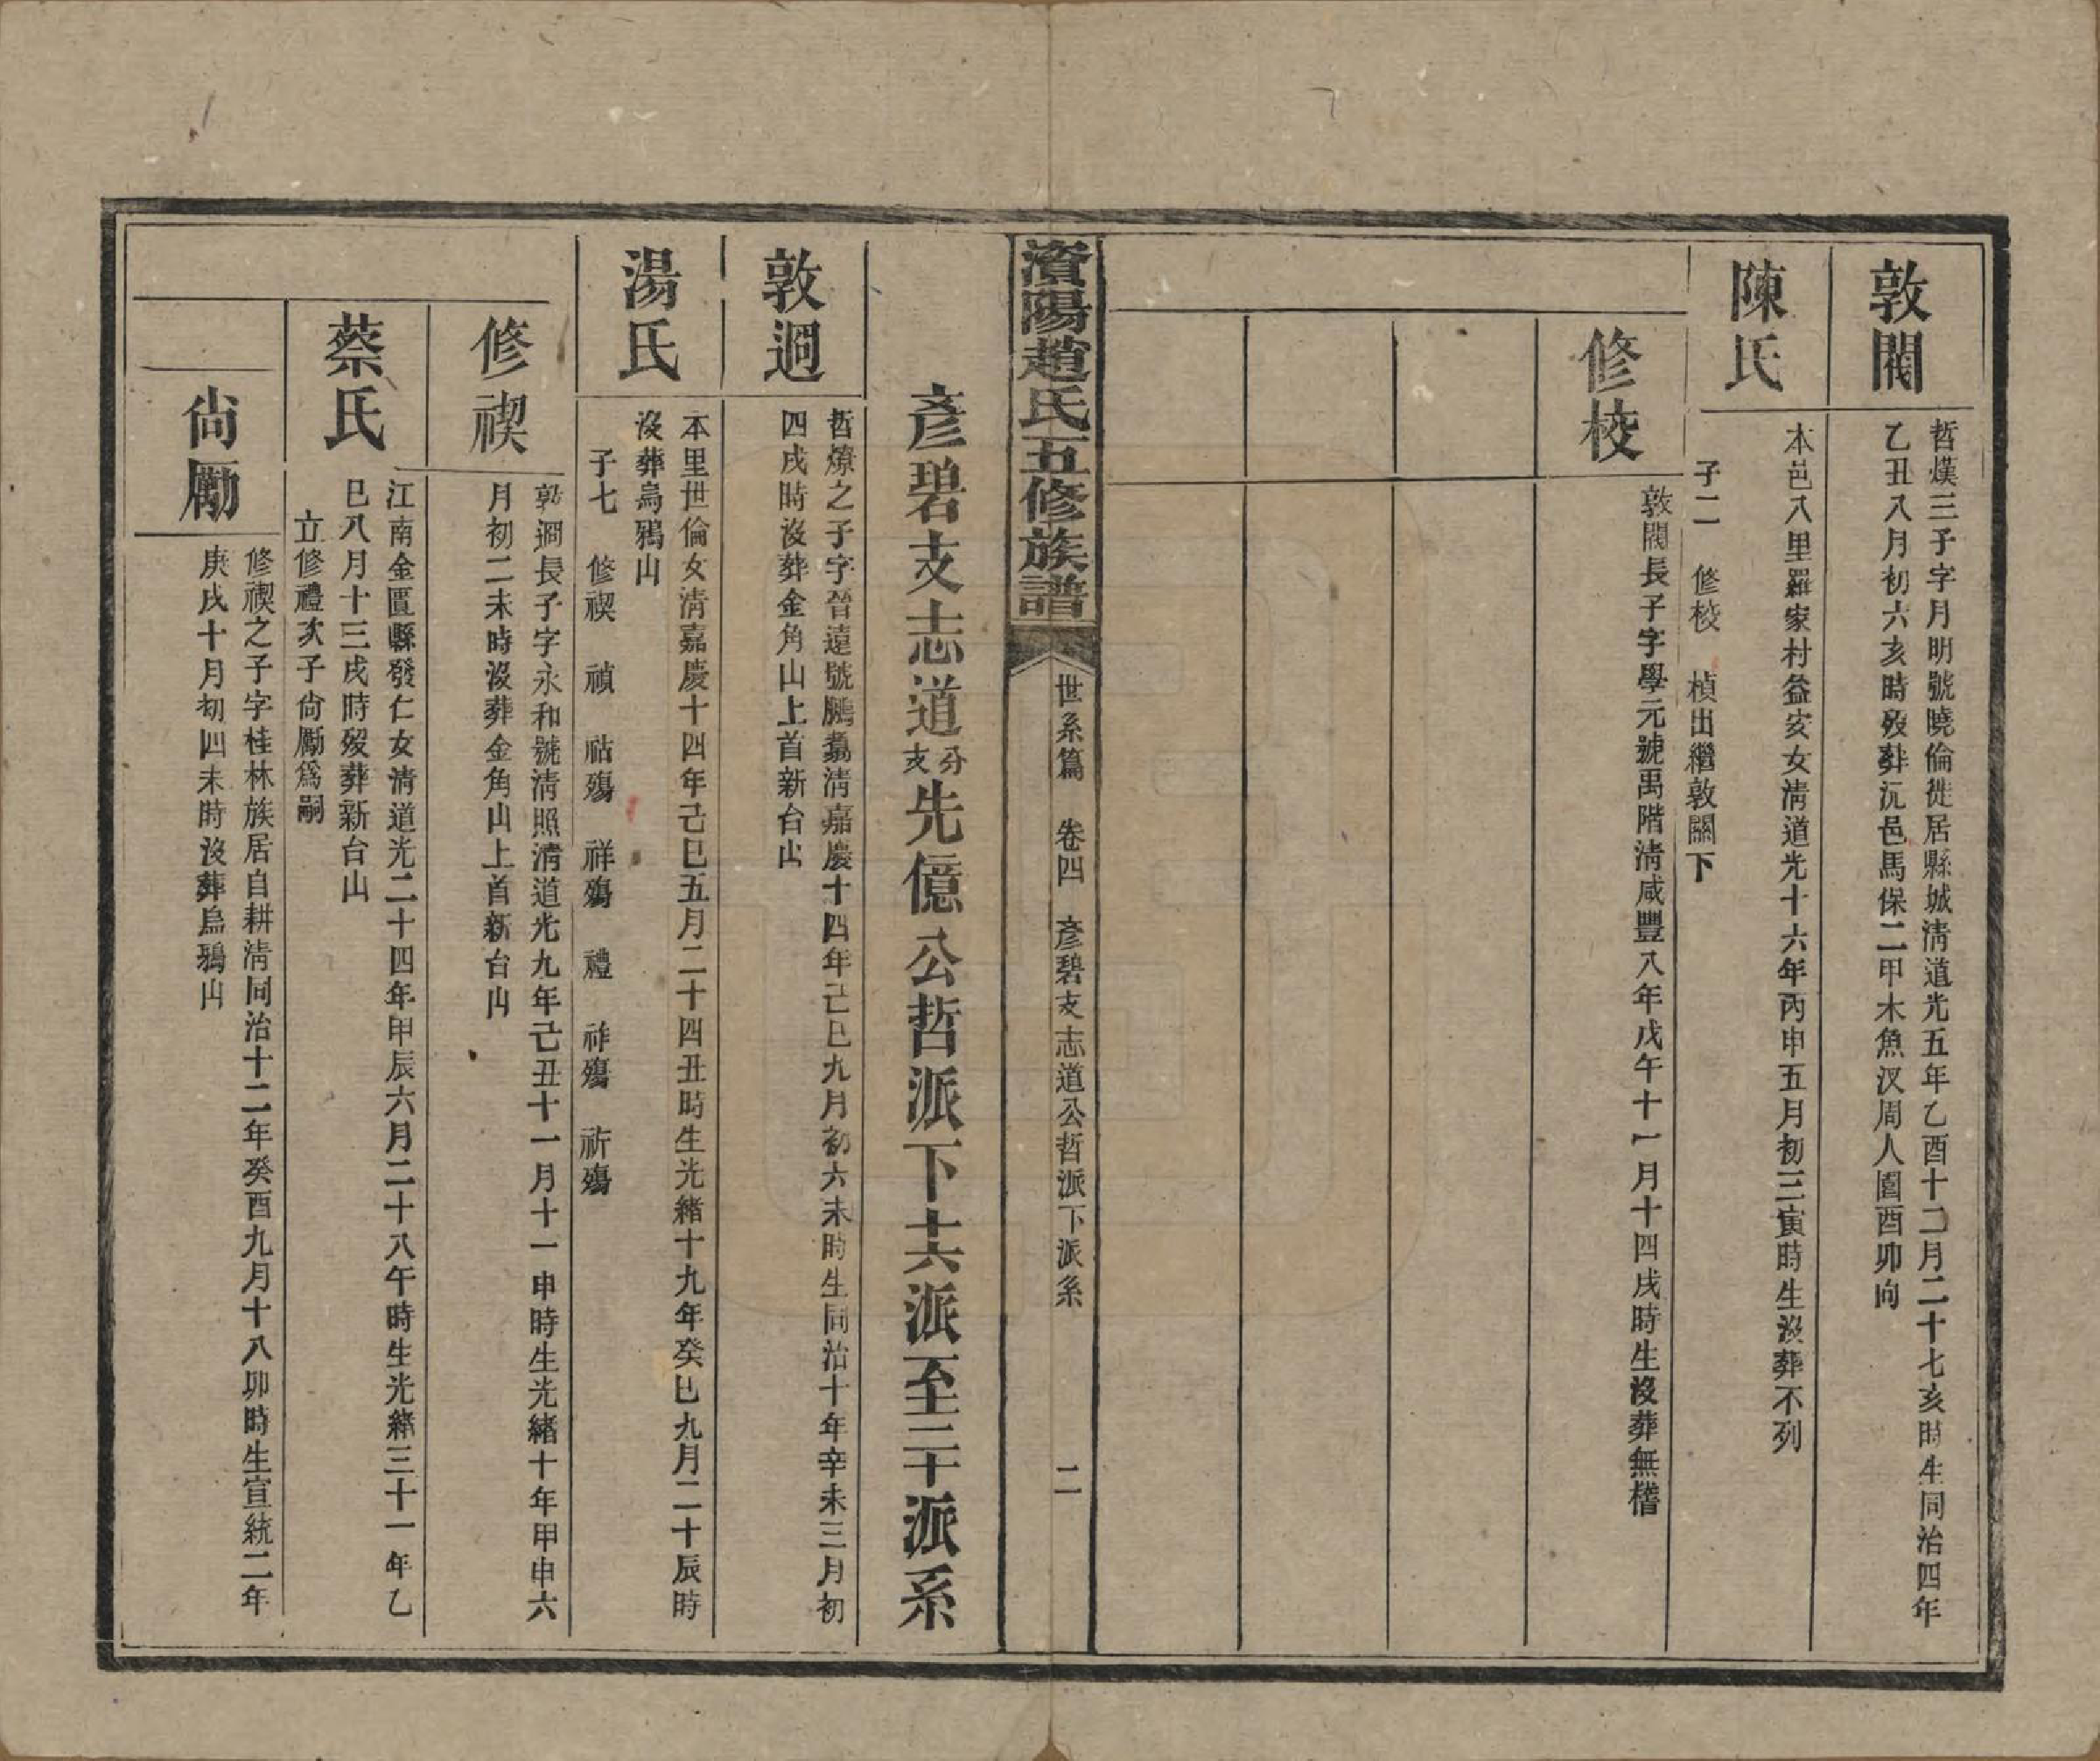 敦閥
哲熯三子字月明號曉倫徙居縣城淸道光五年乙酉十二月二十七亥時生同治四年
乙丑八月初六亥時歿葬沅邑馬保二甲木魚汊周人園酉卯向
陳氏
本邑八里羅家村益安女淸道光十六年丙申五月初三寅時生沒葬不列
子二　修校　楨出繼敦闗下
修校
敦閥長子字學元號萬階淸咸豐八年戊午十一月十四戌時生沒葬無稽
資陽趙氏五修族譜
世系篇　卷四　彥碧支志道公哲派下派系
二
彥碧支志道分支先億公哲派下十六派至二十派系
敦迥
哲燎之子字晉遠號鵬翥淸嘉慶十四年己巳九月初六未時生同治十年辛未三月初
四戌時沒葬金角山上首新台山
湯氏
本里世倫女淸嘉慶十四年己巳五月二十四丑時生光緒十九年癸巳九月二十辰時
沒葬烏鴉山
子七　修禊　禎　祜殤　祥殤　禮　祚殤　祈殤
修禊
敦迥長子字永和號淸照淸道光九年己丑十一月十一申時生光緒十年甲申六
月初二未時沒葬金角山上首新台山
蔡氏
江南金匱縣發仁女淸道光二十四年甲辰六月二十八午時生光緒三十一年乙
巳八月十三戌時歿葬新台山
立修禮次子尙勵爲嗣
尙勵
修禊之子字桂林族居自耕淸同治十二年癸酉九月十八卯時生宣統二年
庚戌十月初四未時沒葬烏鴉山